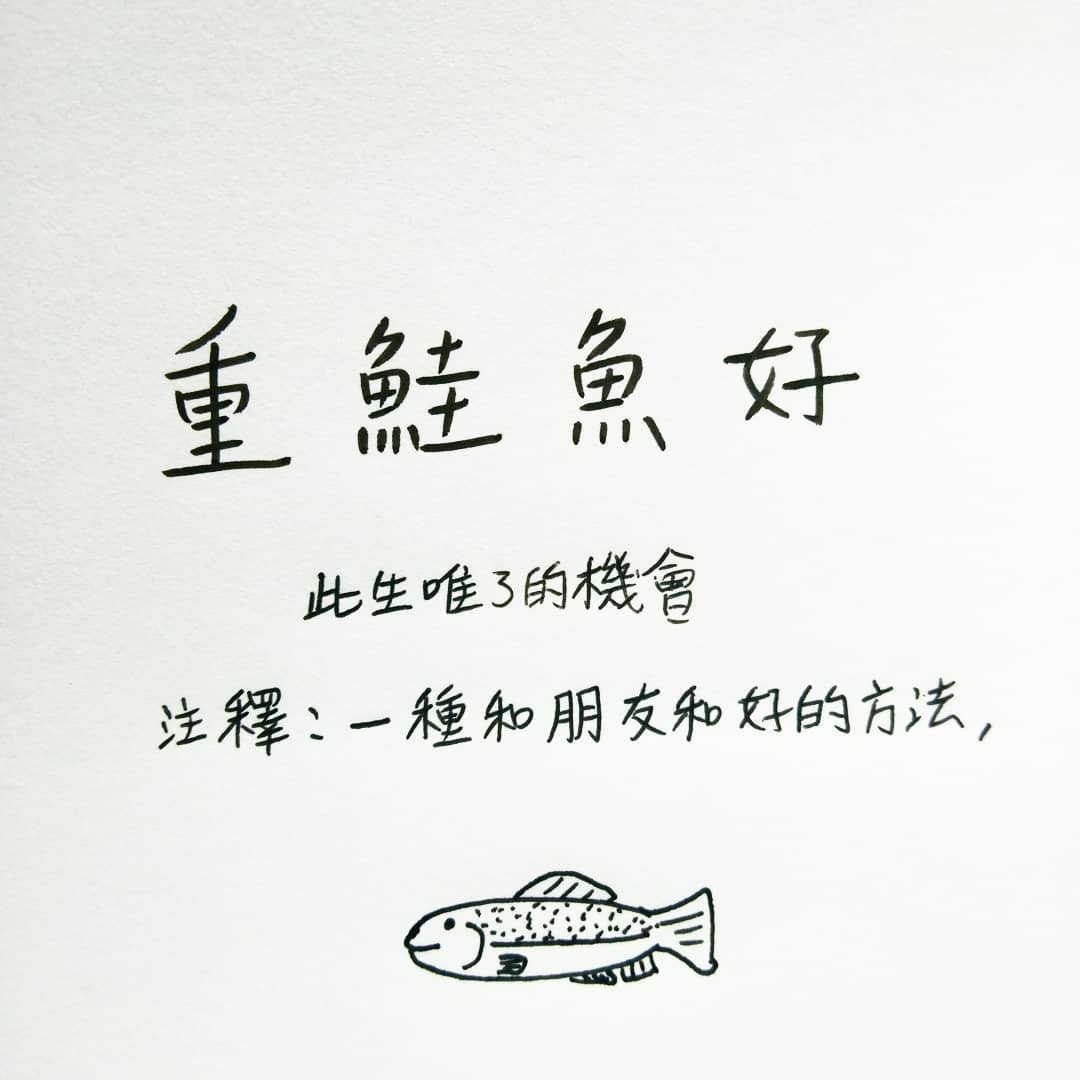 重鮭魚好
此生唯了的機會
注釋：一種和朋友和好的方法，